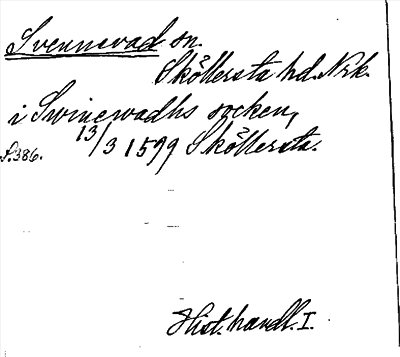 Svennevad sn.
Sköllersta hd. Nrk.
i Swinewadhs socken,
13/3 1599 Sköllersta.
S. 386.
Hist. handl. I.